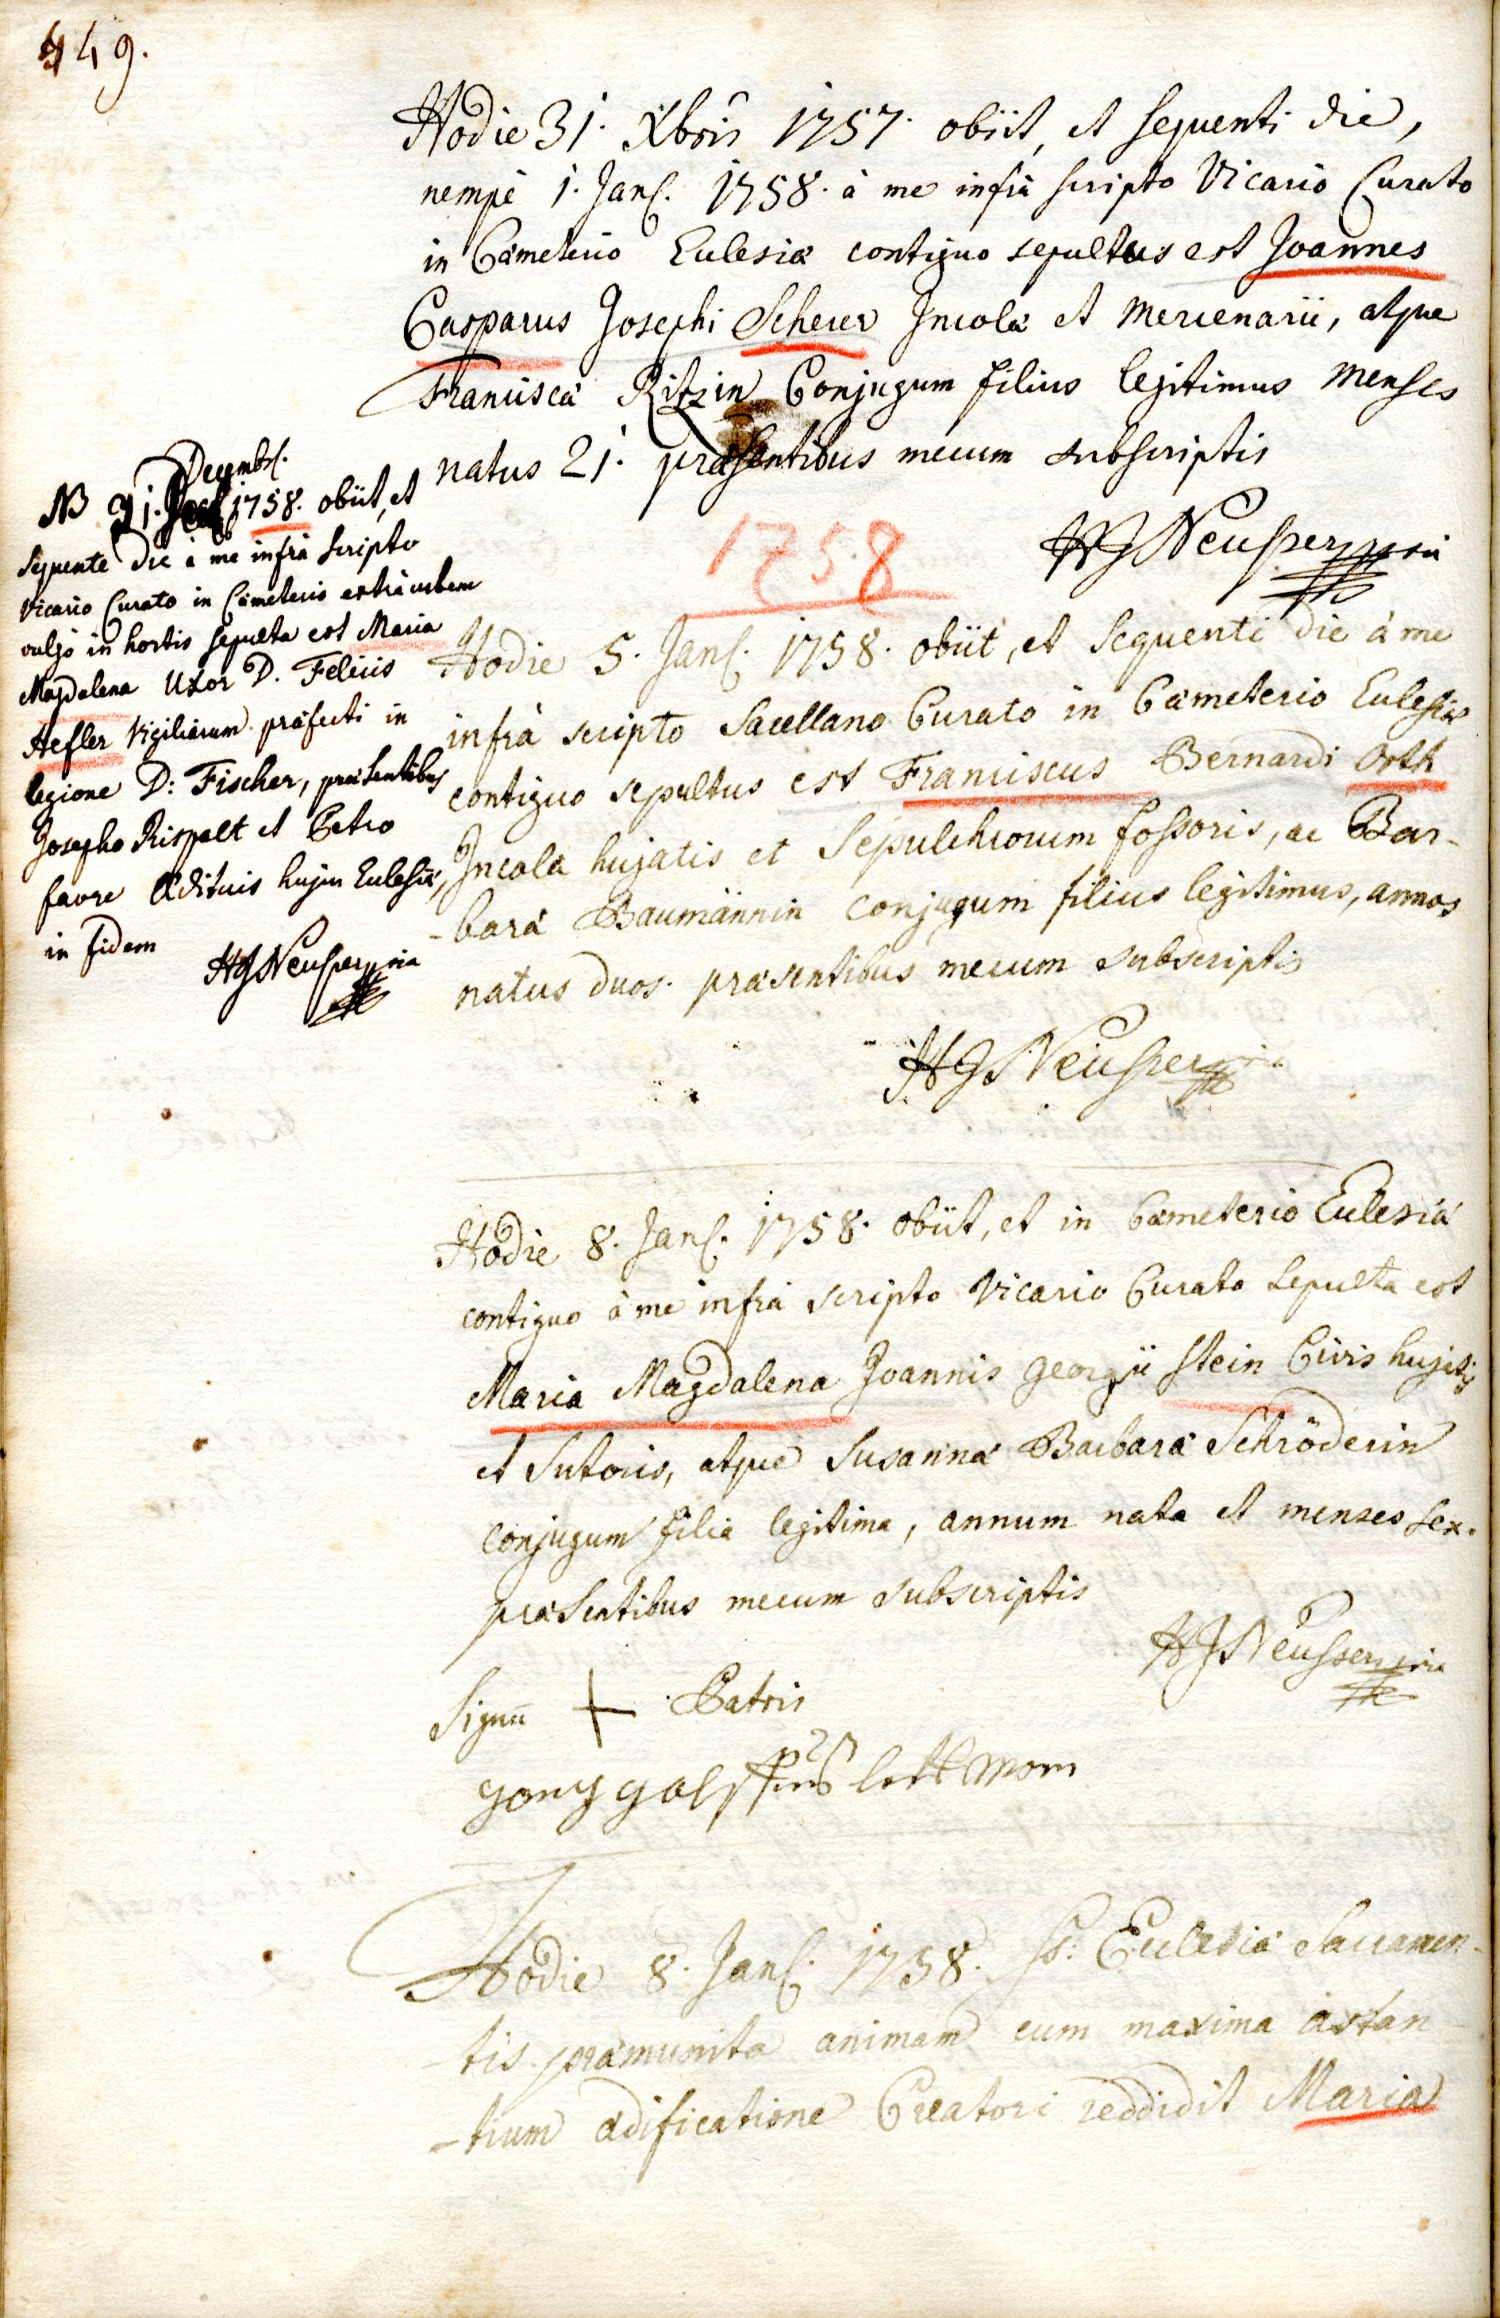 449.
Hodie 31. Xbris 1757. obiit, et sequenti die,
nempè 1. Jan. 1758. à me infrà scripto Vicario Curato
in Cæmeterio Eclesiæ contiguo sepultus est Joannes
Casparus Josephi Scherer Incolæ et Mercenarii, atque
Franciscæ Ritzin Conjugum filius legitimus menses
natus 21. præsentibus mecum subscriptis
HJ Neusser mpria
1758
NB 31. Decembr. 1758. obiit, et
sequente die à me infrà scripto
vicario Curato in Cæmeterio extrà urbem
vulgò in hortis sepulta est Maria
Magdalena Uxor D. Felicis
Hefler Vigiliarum præfecti in
legione D: Fischer, præsentibus
Josepho Rispalt et Petro
favre Ædituis hujus Eclesiæ,
in fidem
HJ Neusser mpria
Hodie 5. Jan. 1758. obiit, et sequenti die à me
infrà scripto Sacellano Curato in Cæmeterio Eclesiæ
contiguo sepultus est Franciscus Bernardi Orth
Incolæ hujatis et Sepulchrorum fossoris, ac Bar-
-baræ Baumännin conjugum filius legitimus, annos
natus duos. præsentibus mecum subscriptis
HJ Neusser
Hodie 8. Jan. 1758. obiit, et in Cæmeterio Eclesiæ
contiguo à me infrà scripto Vicario Curato sepulta est
Maria Magdalena Joannis georgii Stein Civis hujatis
et Sutoris, atque Susannæ Barbaræ Schröderin
conjugum filia legitima, annum nata et menses sex.
præsentibus mecum subscriptis
HJ Neusser mpria
Signū + Patris
Hodie 8. Jan. 1758. SS: Eclesiæ Sacramen-
-tis præmunita animam cum maxima astan
-tium ædificatione Creatori reddidit Maria